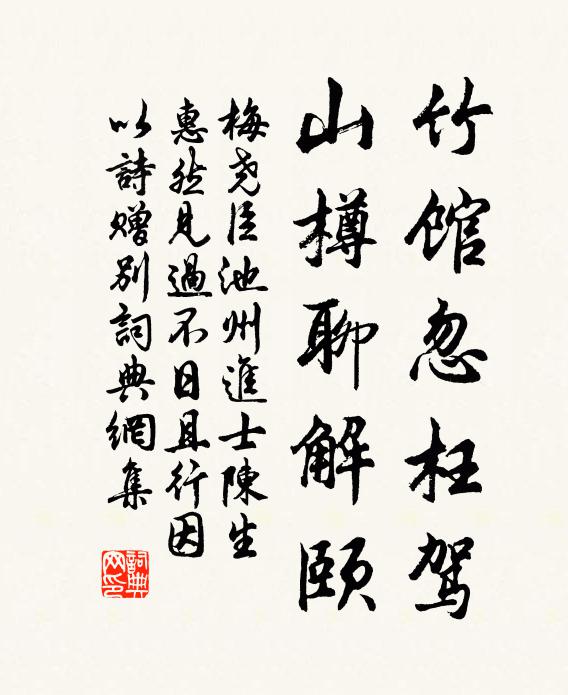 竹館忽枉駕
山樽聊解頤
梅堯臣池州進士陳生
惠然見過不日且行因
以詩贈別詞典網集
詞典网印